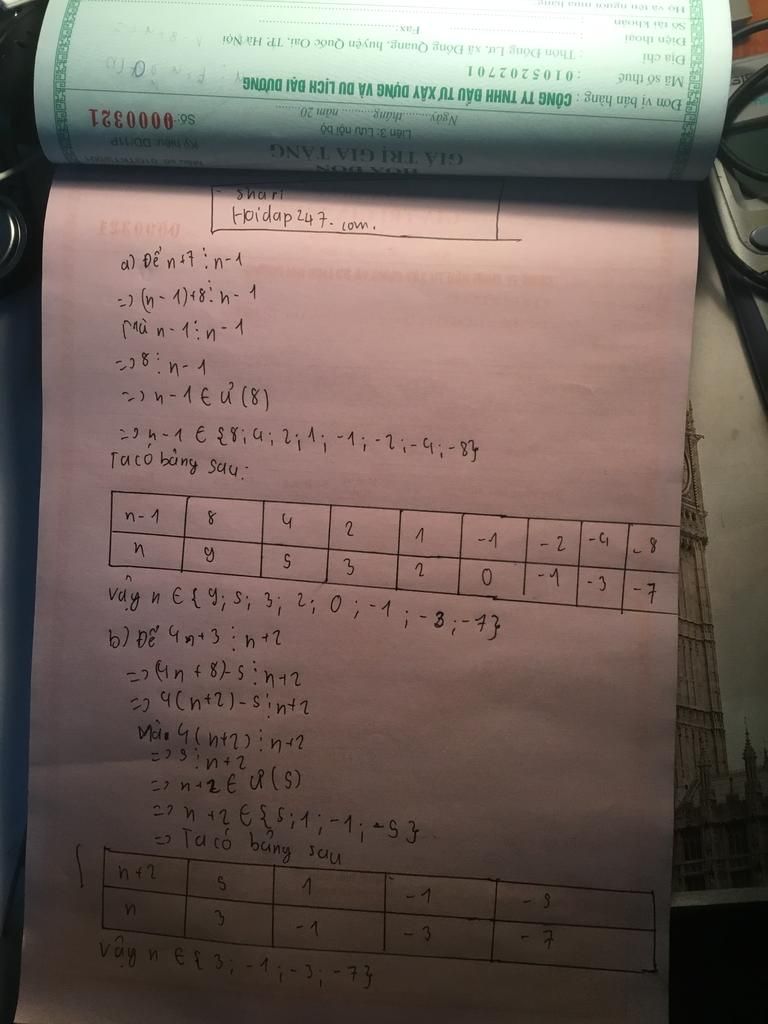 Họ và tên người mua hàng:
Số tài khoản
Điện thoại : Fax:
Địa chỉ : Thôn Đông Lư, Xã Đông Quang, huyện Quốc Oai, TP. Hà Nội
Mã số thuế : 0105202701
Đơn vị bán hàng : CÔNG TY TNHH ĐẦU TƯ XÂY DỰNG VÀ DU LỊCH ĐẠI DƯƠNG
Ngày......... tháng......... năm 20.........
Số: 0000321
Liên 3: Lưu nội bộ
GIÁ TRỊ GIA TĂNG
HÓA ĐƠN
Shari
Hoidap247.com.
a) Để n+7 ⋮ n-1
=> (n-1)+8 ⋮ n-1
Mà n-1 ⋮ n-1
=> 8 ⋮ n-1
=> n-1 ∈ Ư(8)
=> n-1 ∈ {8; 4; 2; 1; -1; -2; -4; -8}
Ta có bảng sau:
n-1 8 4 2 1 -1 -2 -4 -8
n 9 5 3 2 0 -1 -3 -7
Vậy n ∈ {9; 5; 3; 2; 0; -1; -3; -7}
b) Để 4n+3 ⋮ n+2
=> (4n+8)-5 ⋮ n+2
=> 4(n+2)-5 ⋮ n+2
Mà 4(n+2) ⋮ n+2
=> 5 ⋮ n+2
=> n+2 ∈ Ư(5)
=> n+2 ∈ {5; 1; -1; -5}
=> Ta có bảng sau
n+2 5 1 -1 -5
n 3 -1 -3 -7
Vậy n ∈ {3; -1; -3; -7}